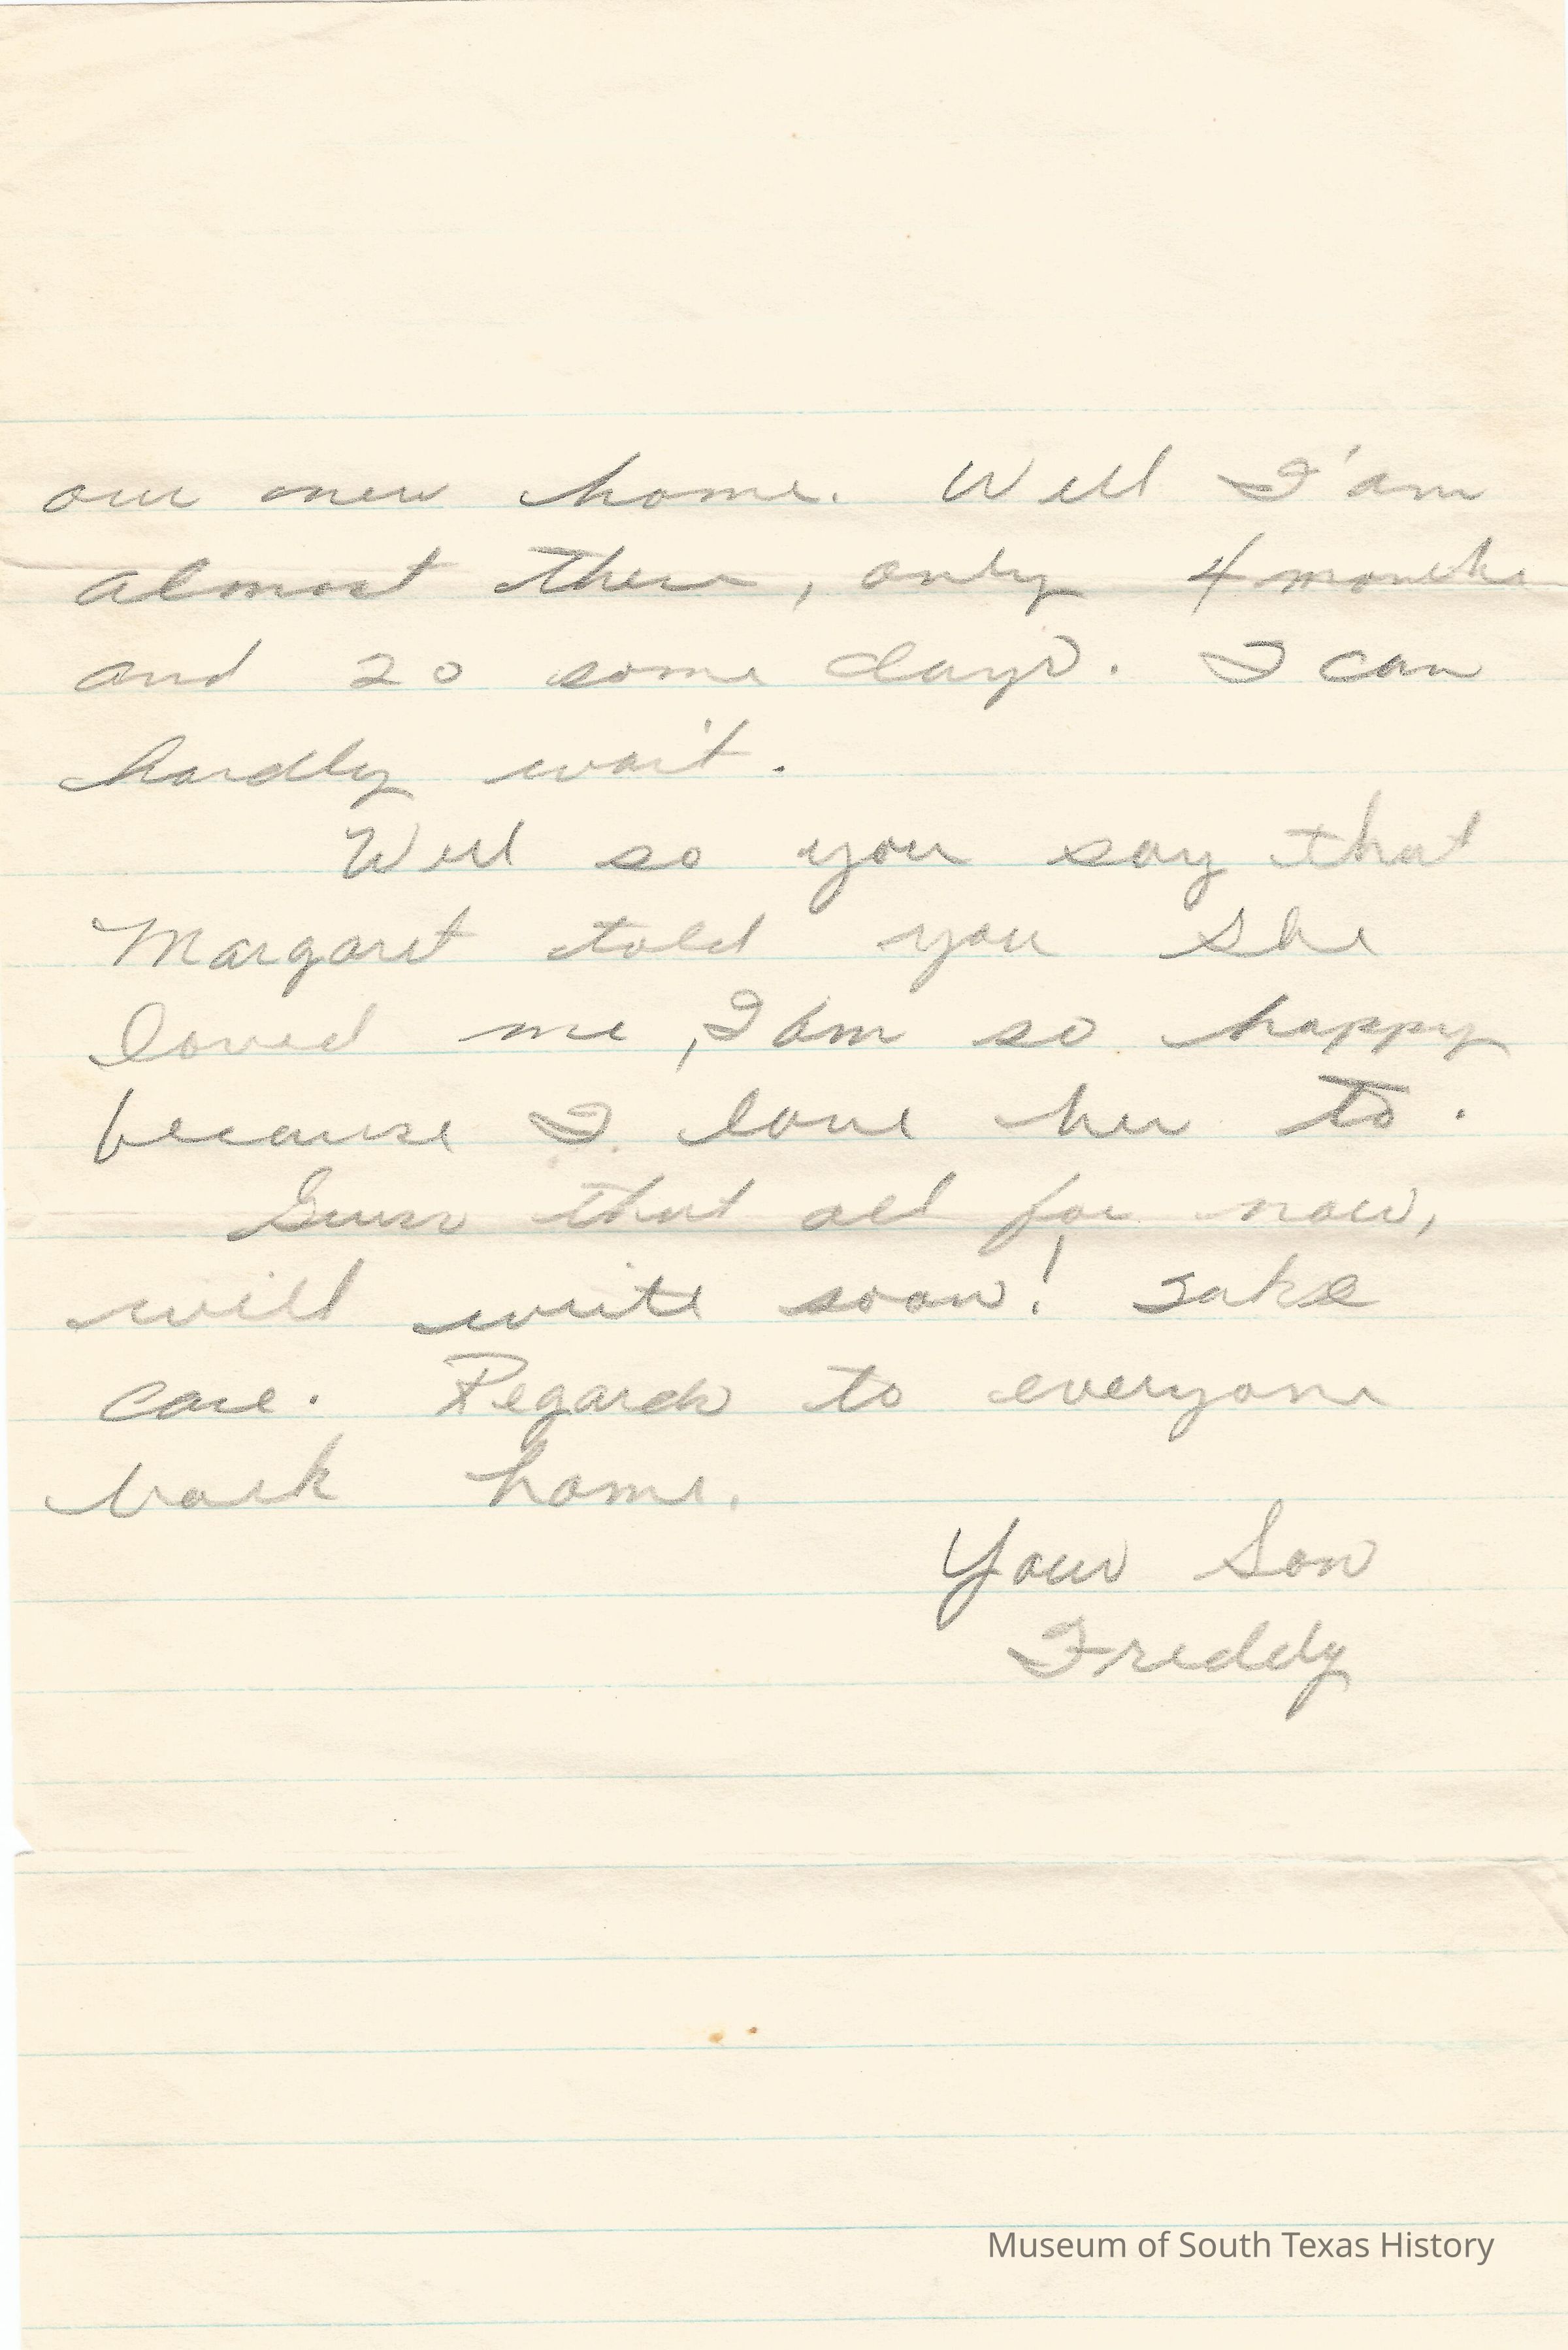 our new home. Well I'am
almost there, only 4 months
and 20 some days. I can
hardly wait.
Well so you say that
Margaret told you she
loved me, I am so happy
because I love her to.
Guess that all for now,
will write soon! Take
care. Regards to everyone
back home.
Your Son
Freddy
Museum of South Texas History